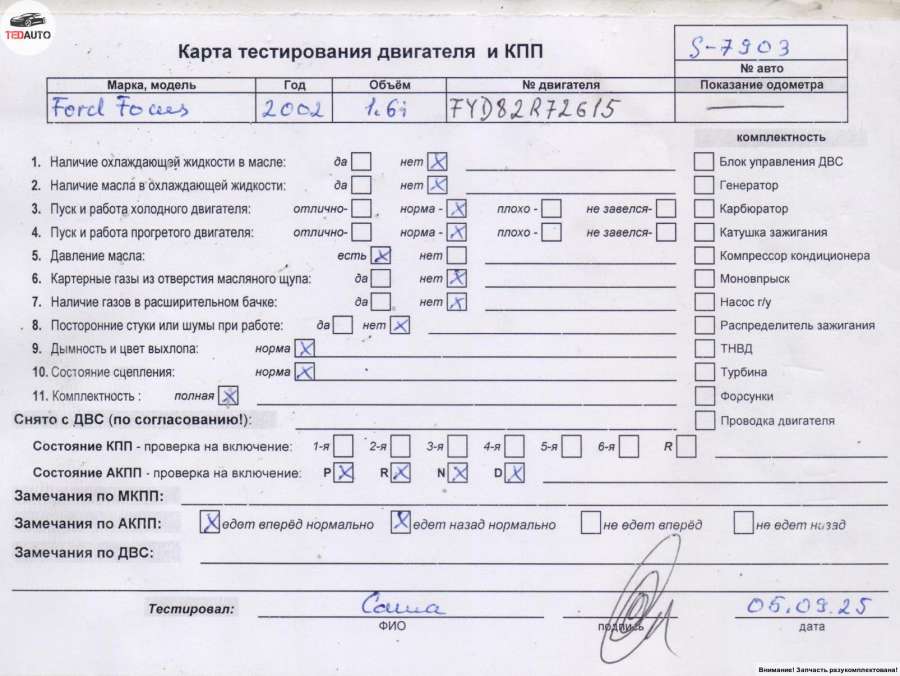 TEDAUTO
Карта тестирования двигателя и КПП
S-7903
№ авто
Марка, модель Год Объём № двигателя Показание одометра
Ford Focus 2002 1.6i FYD82R72615
комплектность
1. Наличие охлаждающей жидкости в масле: да нет X Блок управления ДВС
2. Наличие масла в охлаждающей жидкости: да нет X Генератор
3. Пуск и работа холодного двигателя: отлично- норма - X плохо - не завелся- Карбюратор
4. Пуск и работа прогретого двигателя: отлично- норма - X плохо - не завелся- Катушка зажигания
5. Давление масла: есть X нет Компрессор кондиционера
6. Картерные газы из отверстия масляного щупа: да нет X Моновпрыск
7. Наличие газов в расширительном бачке: да нет X Насос г/у
8. Посторонние стуки или шумы при работе: да нет X Распределитель зажигания
9. Дымность и цвет выхлопа: норма X ТНВД
10. Состояние сцепления: норма X Турбина
11. Комплектность : полная X Форсунки
Снято с ДВС (по согласованию!): Проводка двигателя
Состояние КПП - проверка на включение: 1-я 2-я 3-я 4-я 5-я 6-я R
Состояние АКПП - проверка на включение: P X R X N X D X
Замечания по МКПП:
Замечания по АКПП: X едет вперёд нормально X едет назад нормально не едет вперёд не едет назад
Замечания по ДВС:
Тестировал: Саша 05.09.25
ФИО подпись дата
Внимание! Запчасть разукомплектована!